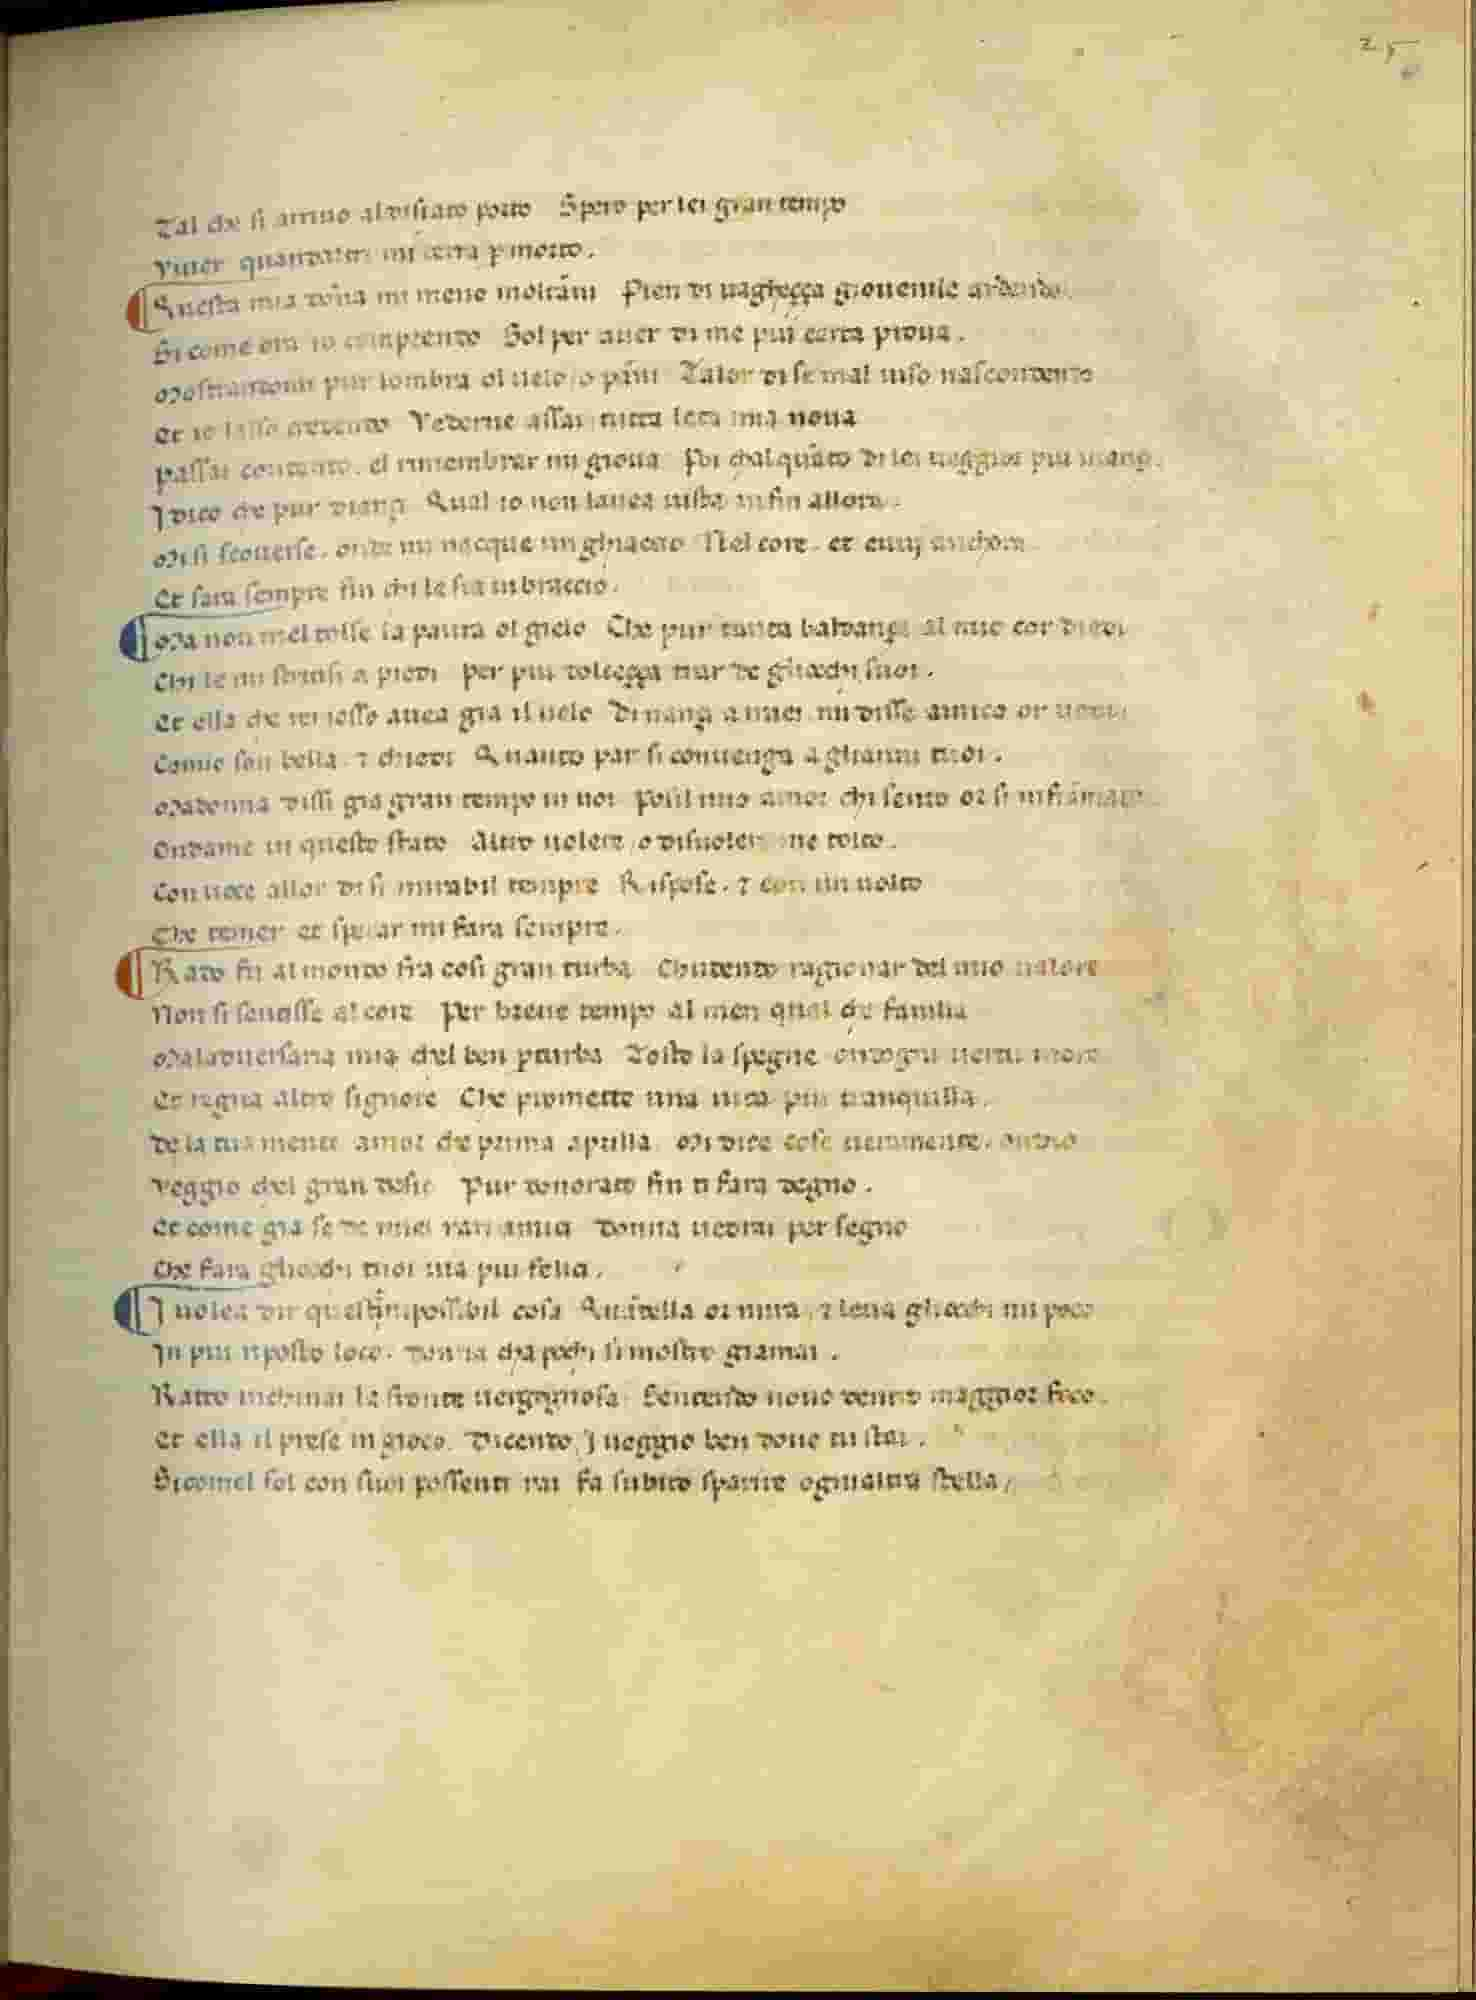 25
Tal che si arriuo al disiato porto Spero per lei gran tempo
Viuer quandaltri mi terra pmorto.
Questa mia dõna mi meno moltãni Pien di uagheçça giouenile ardendo.
Si come ora io comprendo Sol per auer di me piu certa proua.
Mostrandomi pur lombra ol uelo o pãni Talor di se mal uiso nascondendo
Et io lasso credendo Vederne assai tutta leta mia noua
Passai contento. el rimembrar mi gioua Poi chalquãto di lei ueggior piu inanç.
I dico che pur dianç Qual io non lauea uista in fin allora.
Mi si scouerse. onde mi nacque un ghiaccio Nel core. et euui anchora.
Et sara sempre fin chi le sia in braccio.
Ma non mel tolse la paura ol gielo Che pur tanta baldança al mio cor diedi
Chi le mi strinsi a piedi Per piu dolceçça trar de gliocchi suoi.
Et ella che remosso auea gia il uelo Dinançi a miei mi disse amico or uedi
Comio son bella. ⁊ chiedi Quanto par si conuenga agli anni tuoi.
Madonna dissi gia gran tempo in uoi Posil mio amor chi sento or si infiãmato.
Ondame in questo stato Altro uolere o disuoler me tolto.
Con uoce allor di si mirabil tempre Rispose. ⁊ con un uolto
Che temer et sperar mi fara sempre.
Rado fu al mondo fra cosi gran turba Chudendo ragionar del mio ualore
Non si sentisse al core Per breue tempo al men qual che fauilla
Ma laduersaria mia chel ben pturba Tosto la spegne ondogni uertu more
Et regna altro signore Che promette una uita piu tranquilla.
De la tua mente amor che prima aprilla. Mi dice cose ueramente. ondio
Veggio chel gran desio Pur donorato fin ti fara degno.
Et come gia se de miei rari amici Donna uedrai per segno
Che fara gliocchi tuoi uia piu felici.
I uolea dir questẽ impossibil cosa Quãdella or mira. ⁊ leua gliocchi un poco
In piu riposto loco. Donna cha pochi si mostro giamai.
Ratto inchinai la fronte uergognosa Sentendo nouo dentro maggior foco.
Et ella il prese in gioco. Dicendo, I ueggio ben doue tu stai.
Sicomel sol con suoi possenti rai Fa subito sparire ognialtra stella/